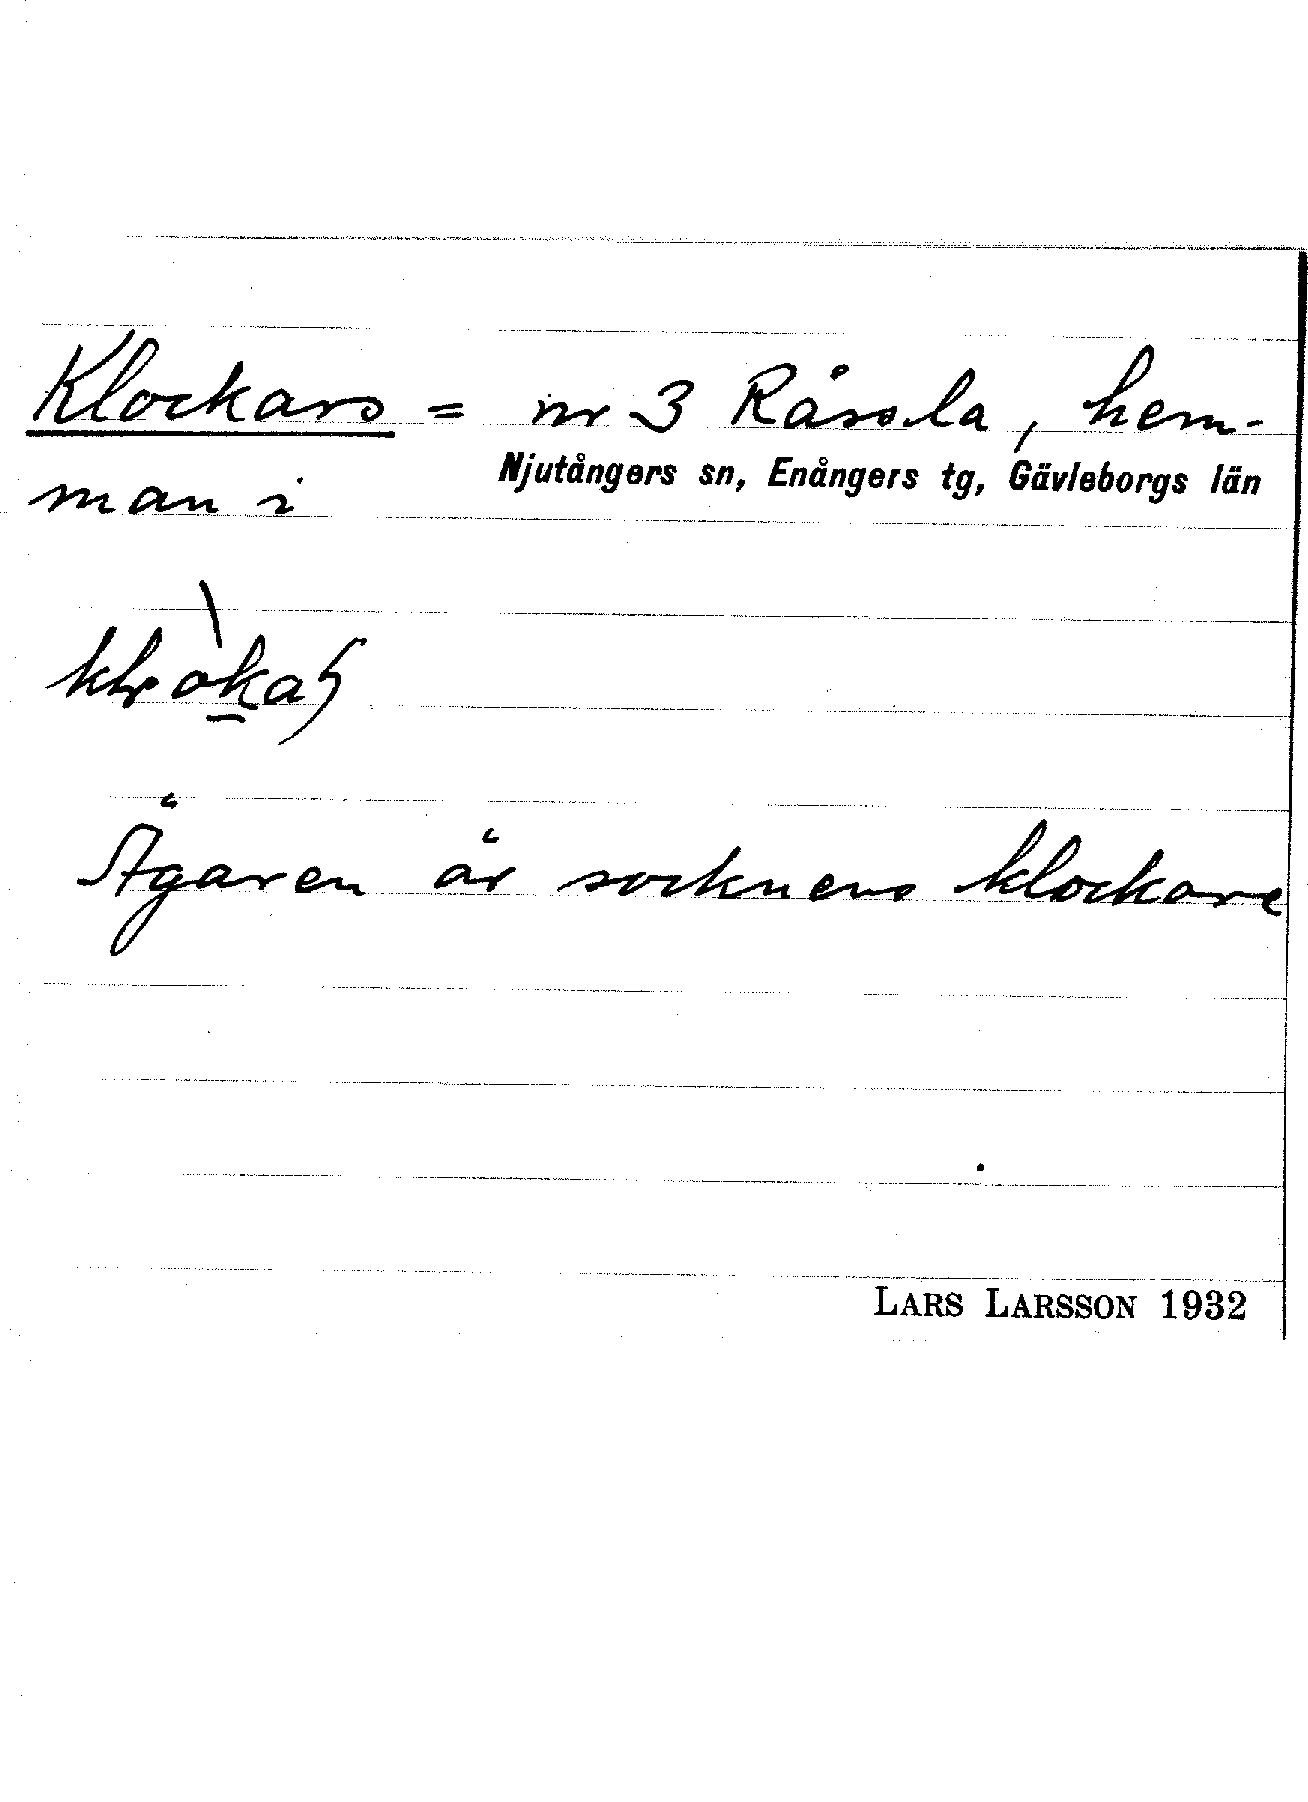 Klockars = nr 3 Råssla, hem-
Njutångers sn, Enångers tg, Gävleborgs län
man i
Ägaren är socknens klockare
LARS LARSSON 1932